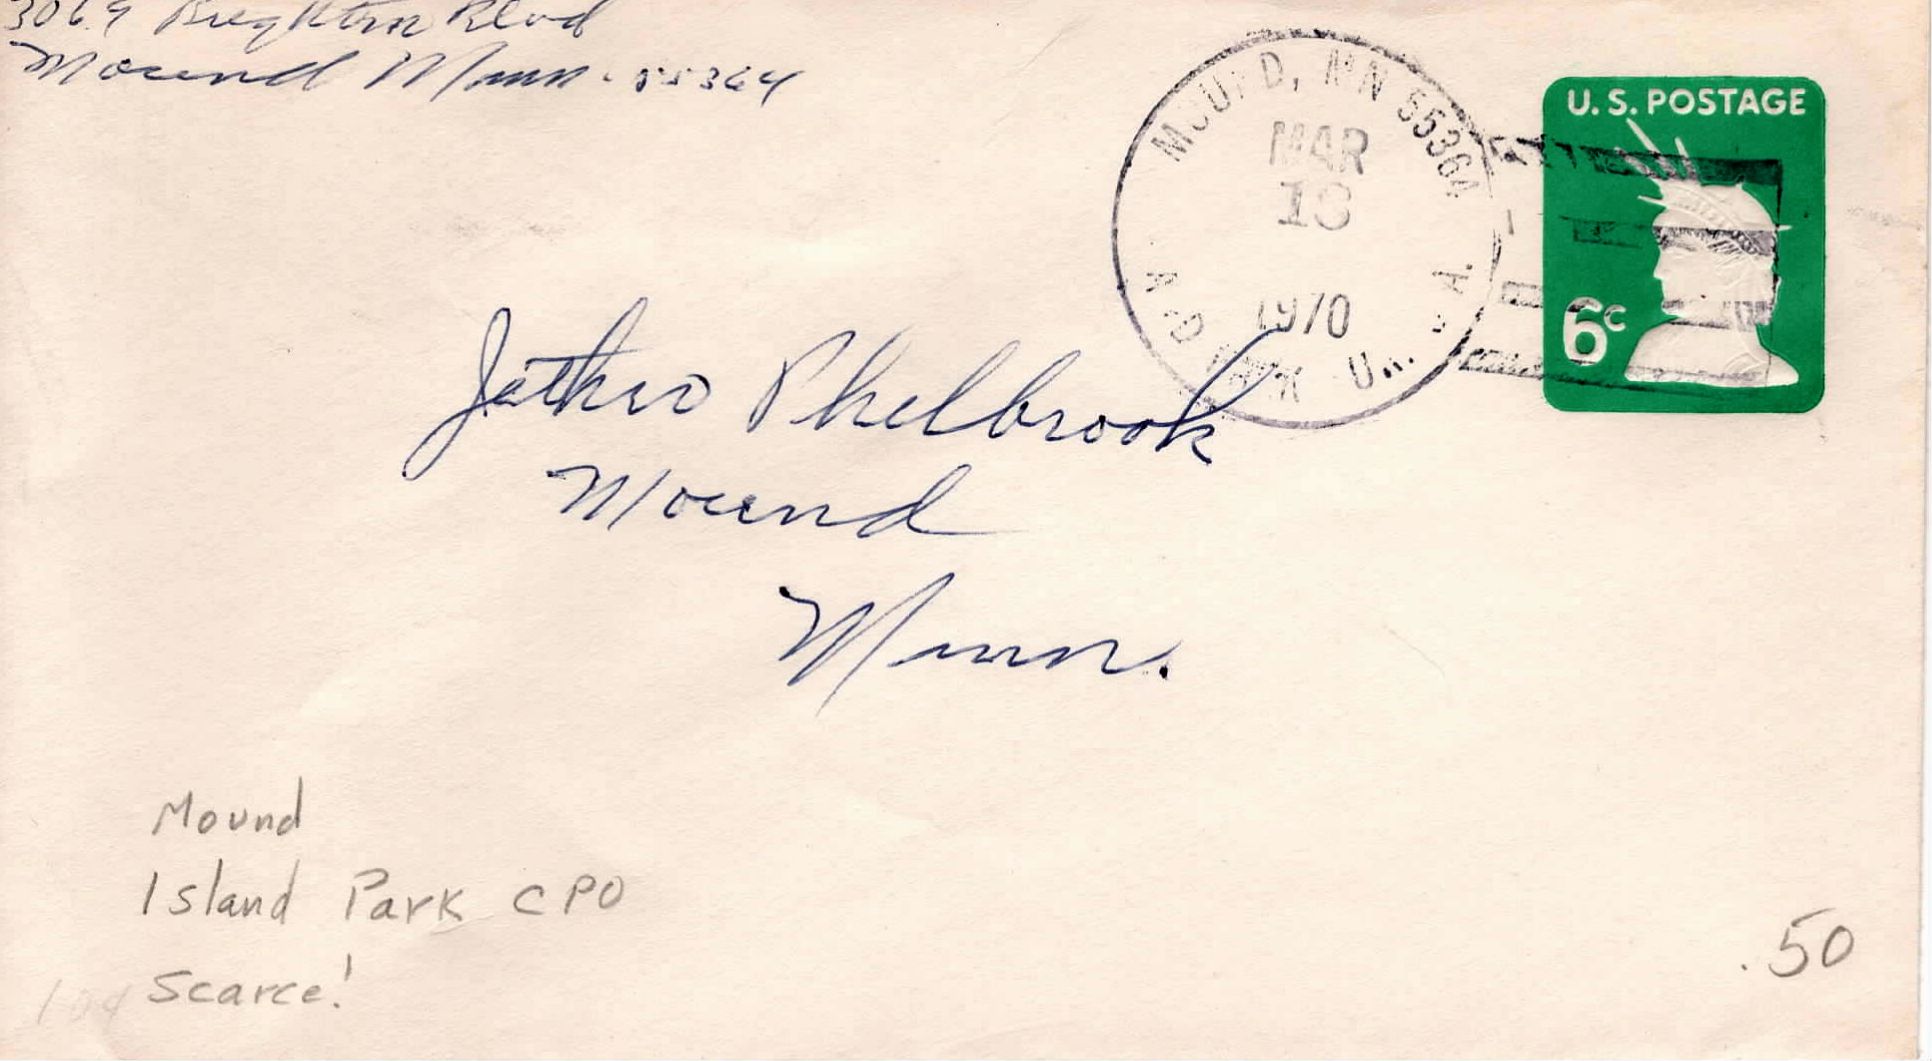 3069 Brighton Blvd
Mound Minn. 55364
MOUND, MN 55364
MAR
1970
U. S. POSTAGE
6c
Jethro Philbrook
Mound
Minn.
Mound
Island Park CPO
Scarce!
.50